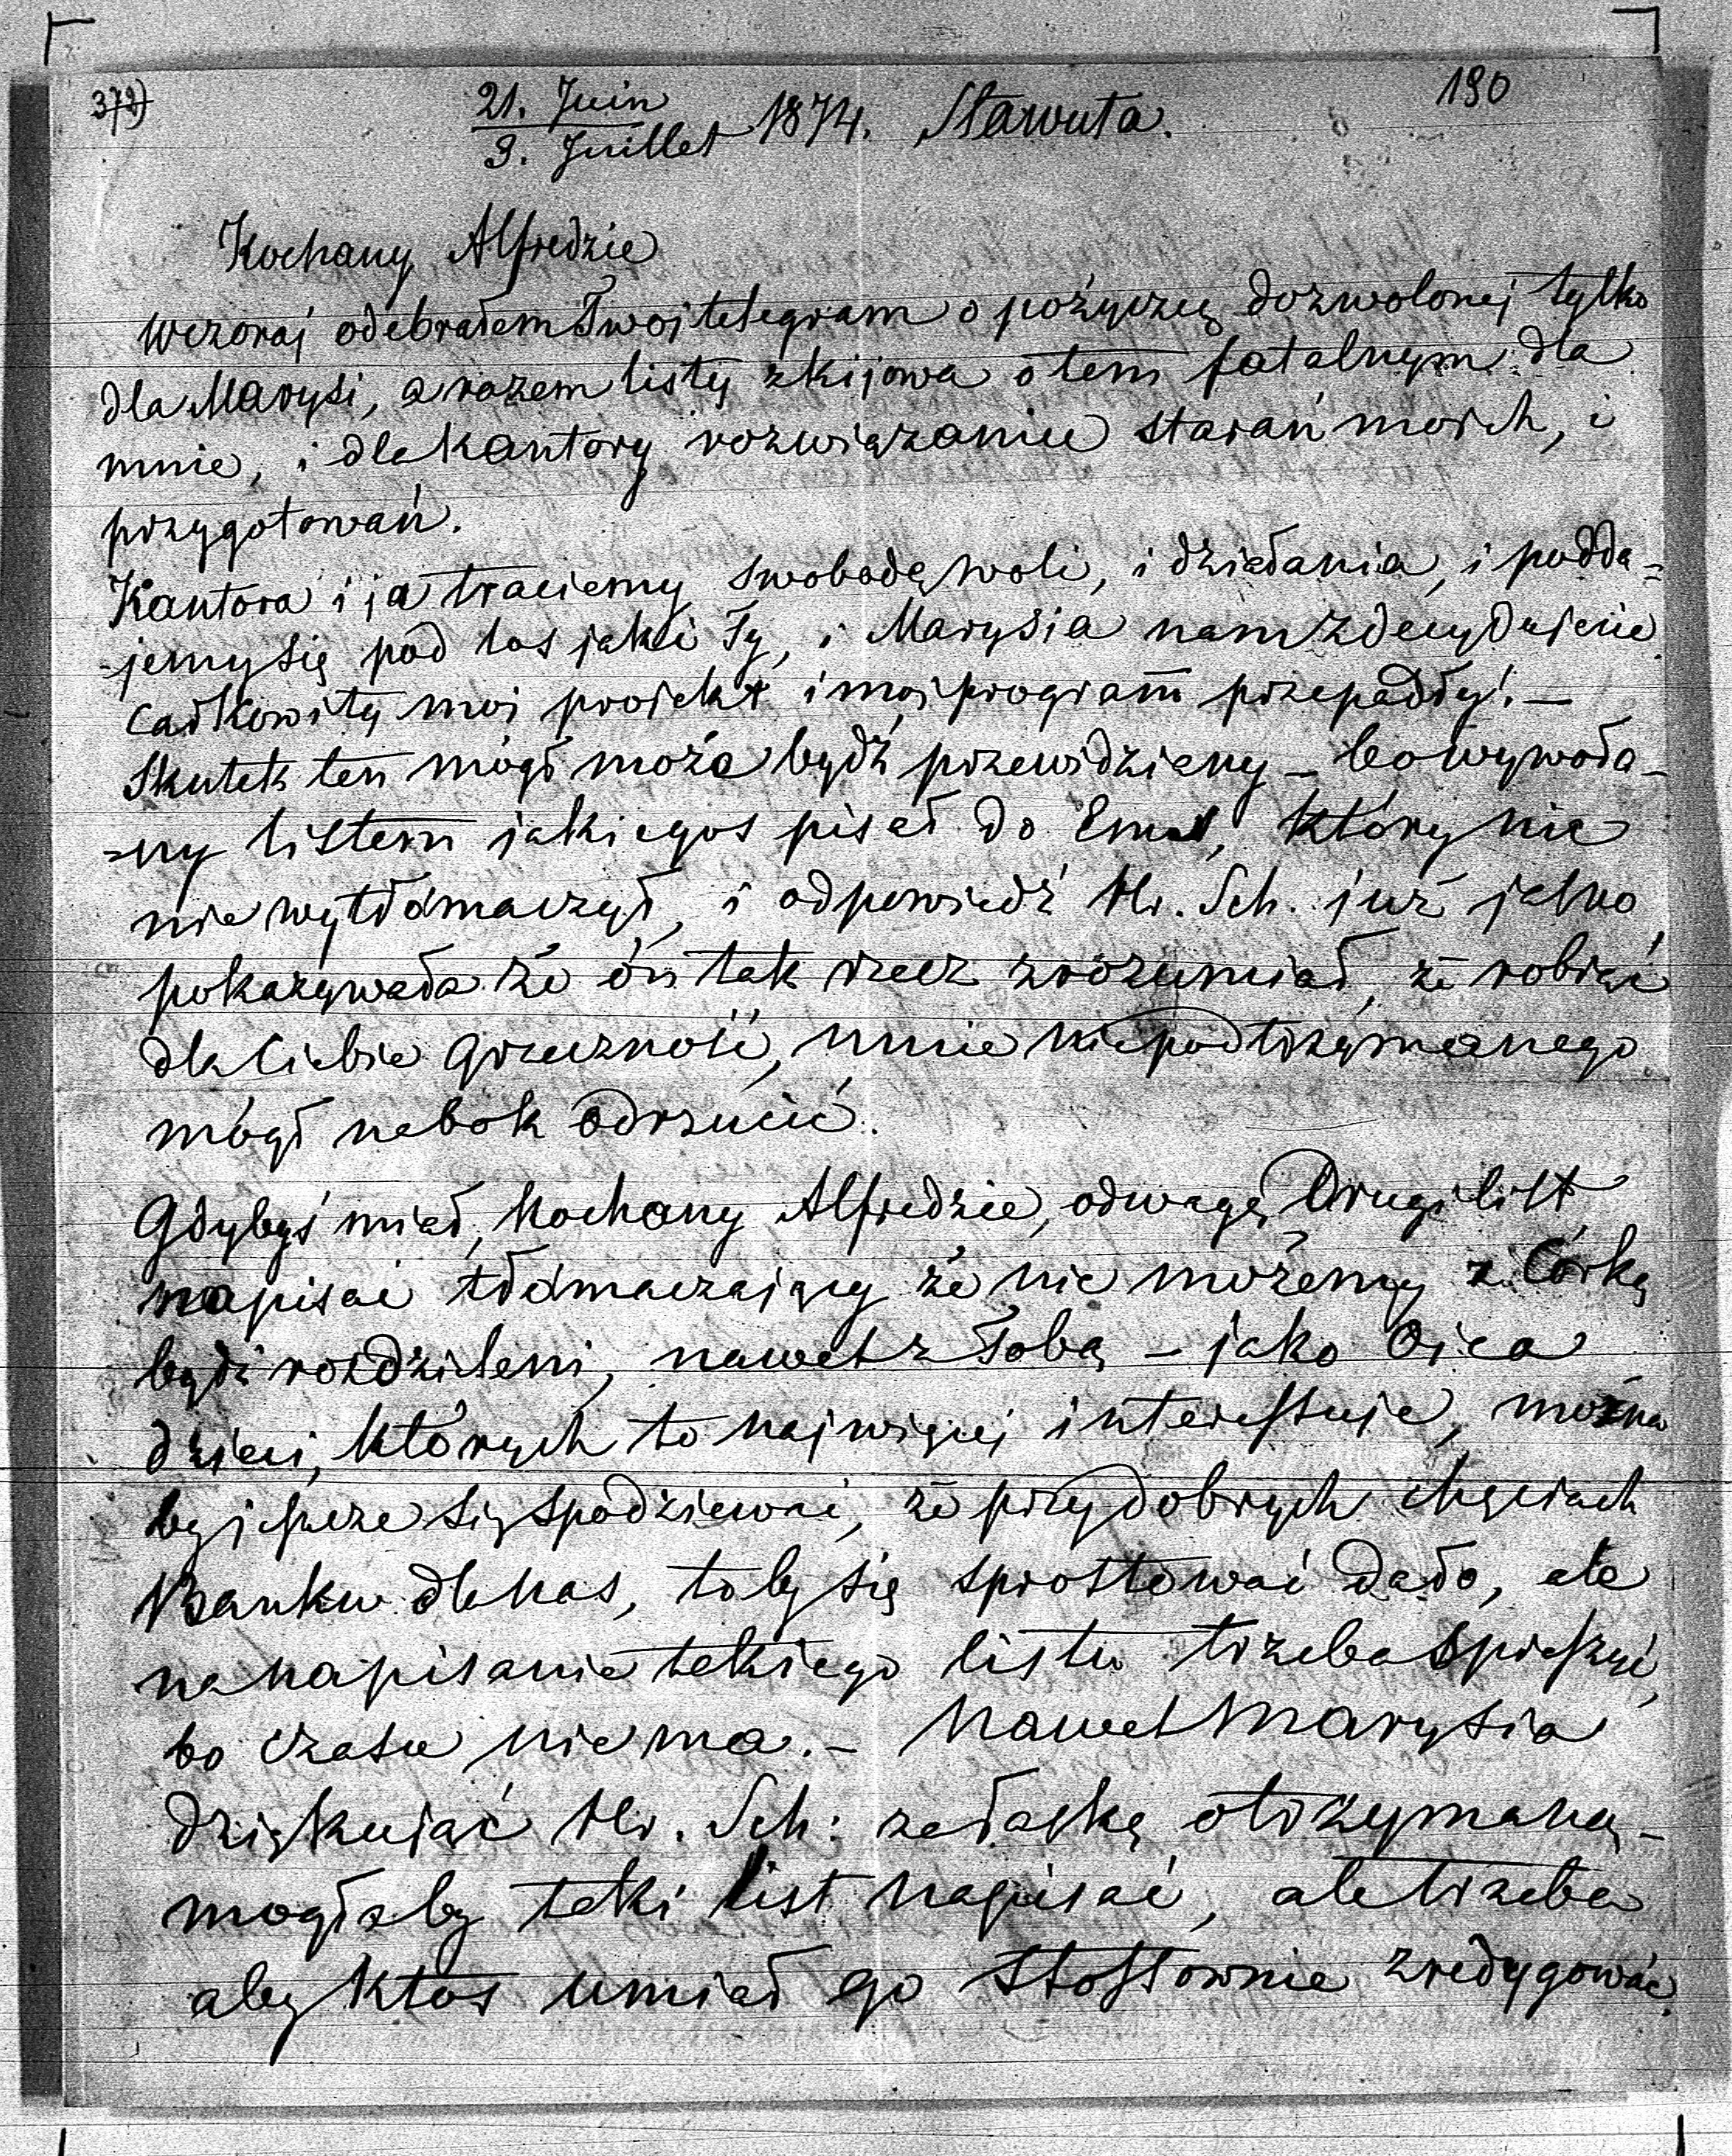 372) 21. Juin 190
9. Juillet 1874. Sławuta.
Kochany Alfredzie
Wczoraj odebrałem Twoj telegram o pożyczcę dozwolonej tylko
dla Marysi, a razem listy z Kijowa o tem fatalnym dla
mnie, i dla Kantory rozwiązaniu starań moich, i
przygotowań.
Kantora i ja traciemy swobodę woli, i działania, i podda=
-jemy się pod los jaki Ty, i Marysia nam zdecydujecie
całkowity moj projekt i moj program przepadły! —
Skutek ten mógł może bydź przewidziany – bo wywoła-
=ny listem jakiegos pisał do Ems, który nic
nie wytłómaczył, i odpowiedź Hr. Sch. już jasno
pokazywała że ón tak rzecz zrozumiał, że robiąc
dla Ciebie grzeczność, mnie niepodtrzymanego
mógł na bok odrzucić.
Gdybyś miał, Kochany Alfredzie, odwagę Drugi list
napisać tłómaczający że nie możemy z Córką
bydź rozdzieleni, nawet z Tobą – jako Ojca
dzieci, których to najwięcej interessuje, można
by jeszcze się spodziewać, że przy dobrych chęciach
Banku dla nas, to by się sprostować dało, ale
na napisanie takiego listu trzeba spieszyć,
bo czasu nie ma. – Nawet Marysia
dziękując Hr. Sch: za łaskę otrzymaną –
mogłaby taki list napisać, ale trzeba
aby ktos umiał go stossownie zredygować.